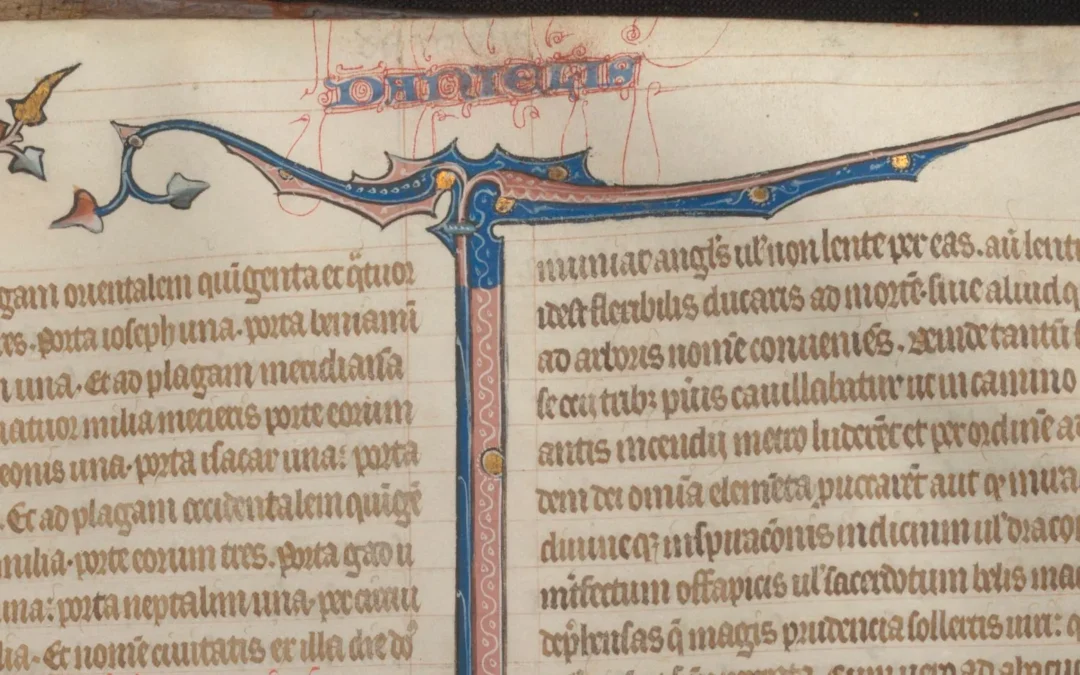 DANIELIS
gam orientalem qũigenta et q̃tuor
res. Porta ioseph una. porta beniamĩ
una. Et ad plagam meridianã
atuor milia mecieris porte eorum
eonis una. porta isacar una: porta
. Et ad plagam occidentalem quĩgẽ
milia. porte eorum tres. Porta gad u
na: porta neptalim una. per circui
lia. Et nomẽ ciuitatis ex illa die dõ
ul' non lente per eas. aũ lenti
idest flexibilis ducaris ad mortẽ. siue aliud q
ad arboris nomẽ conueniẽs. Deinde tantũ
pueris cauillabatur ut in camino
antis incendij metro luderẽt et per ordinẽ
dem dei omĩa elemẽta putarẽt aut
diuineq; inspiracõnis indicium ul' draco
ĩterfectum offa picis ul' sacerdotum belis ma
dep̃hensas q̃ magis prudencia sollertis uiri: q